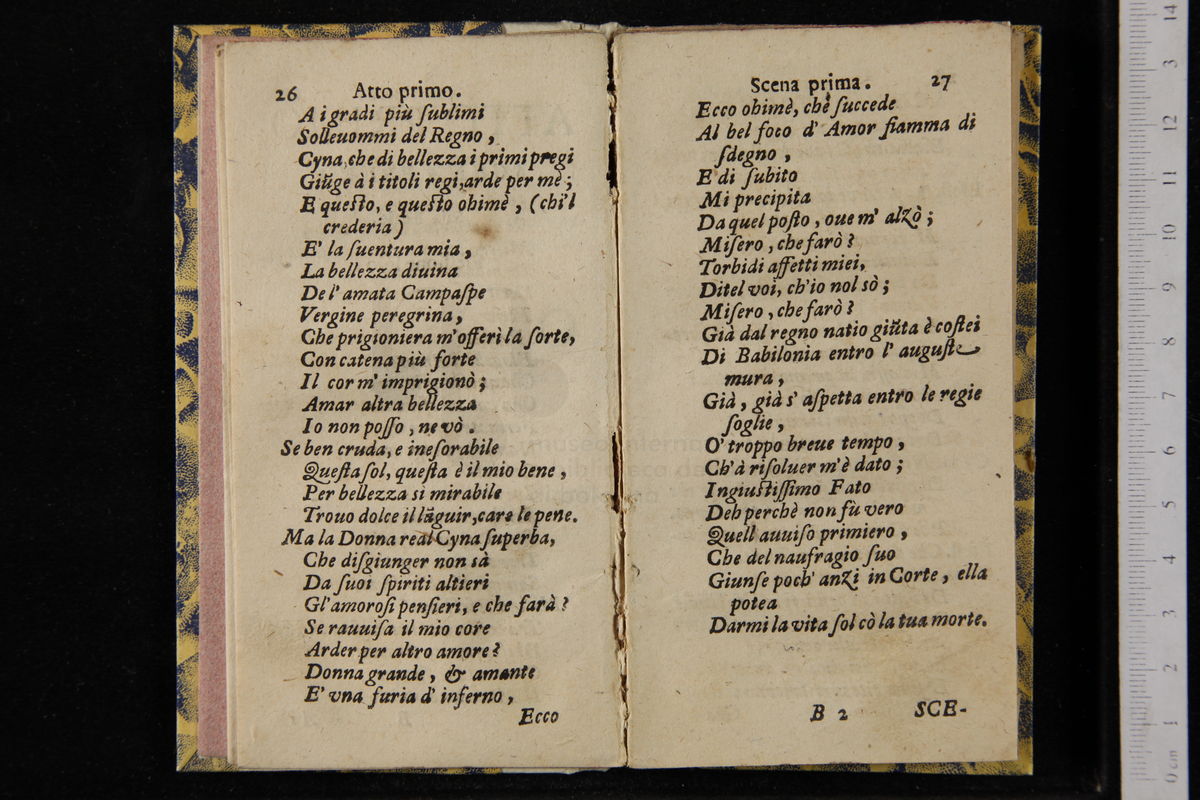 26 Atto primo.
A i gradi più ſublimi
Solleuommi del Regno,
Cyna, che di bellezza i primi pregi
Giũge à i titoli regi, arde per me;
E queſto, e queſto ohimè, (chi'l
crederia)
E' la ſuentura mia,
La bellezza diuina
De l' amata Campaſpe
Vergine peregrina,
Che prigioniera m'offerì la ſorte,
Con catena più forte
Il cor m' imprigionò;
Amar altra bellezza
Io non poſſo, ne vò.
Se ben cruda, e ineſorabile
Queſta ſol, queſta è il mio bene,
Per bellezza si mirabile
Trouo dolce il lãguir, care le pene.
Ma la Donna real Cyna ſuperba,
Che diſgiunger non sà
Da ſuoi ſpiriti altieri
Gl'amoroſi penſieri, e che farà?
Se rauuiſa il mio core
Arder per altro amore?
Donna grande, & amante
E' vna furia d' inferno,
Ecco
Scena prima. 27
Ecco ohimè, che ſuccede
Al bel foco d' Amor fiamma di
ſdegno,
E di ſubito
Mi precipita
Da quel poſto, oue m' alzò;
Miſero, che farò?
Torbidi affetti miei,
Ditel voi, ch'io nol sò;
Miſero, che farò?
Già dal regno natio giũta è coſtei
Di Babilonia entro l' auguſte
mura,
Già, già s' aſpetta entro le regie
ſoglie,
O' troppo breue tempo,
Ch'à riſoluer m'è dato;
Ingiuſtiſſimo Fato
Deh perchè non fù vero
Quell auuiſo primiero,
Che del naufragio ſuo
Giunſe poch' anzi in Corte, ella
potea
Darmi la vita ſol cò la tua morte.
B 2 SCE-
0 cm 1 2 3 4 5 6 7 8 9 10 11 12 13 14